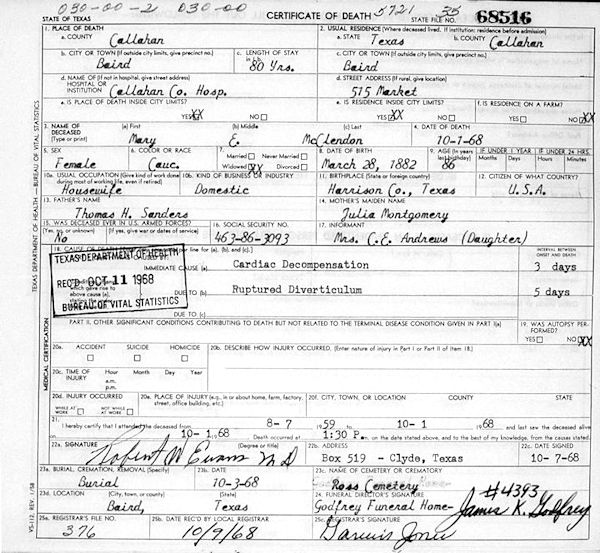 030-00-2 030-00 5721 35
STATE OF TEXAS CERTIFICATE OF DEATH 68516
1. PLACE OF DEATH 2. USUAL RESIDENCE (Where deceased lived. If institution: residence before admission)
a. COUNTY Callahan a. STATE Texas b. COUNTY Callahan
b. CITY OR TOWN (If outside city limits, give precinct no.) Baird c. LENGTH OF STAY in 1 b. 80 Yrs. b. CITY OR TOWN (If outside city limits, give precinct no.) Baird
d. NAME OF (If not in hospital, give street address) HOSPITAL OR INSTITUTION Callahan Co. Hosp. d. STREET ADDRESS (If rural, give location) 515 Market
e. IS PLACE OF DEATH INSIDE CITY LIMITS? YES XX NO e. IS RESIDENCE INSIDE CITY LIMITS? YES XX NO f. IS RESIDENCE ON A FARM? YES NO
3. NAME OF DECEASED (Type or print) (a) First Mary (b) Middle E. (c) Last McClendon 4. DATE OF DEATH 10-1-68
5. SEX Female 6. COLOR OR RACE Cauc. 7. Married Never Married Widowed XX Divorced 8. DATE OF BIRTH March 28, 1882 9. AGE (In years last birthday) 86 IF UNDER 1 YEAR Months Days IF UNDER 24 HRS. Hours Min.
10a. USUAL OCCUPATION (Give kind of work done during most of working life, even if retired) Housewife 10b. KIND OF BUSINESS OR INDUSTRY Domestic 11. BIRTHPLACE (State or foreign country) Harrison Co., Texas 12. CITIZEN OF WHAT COUNTRY? U.S.A.
13. FATHER'S NAME Thomas H. Sanders 14. MOTHER'S MAIDEN NAME Julia Montgomery
15. WAS DECEASED EVER IN U.S. ARMED FORCES? (Yes, no, or unknown) No (If yes, give war or dates of service) 16. SOCIAL SECURITY NO. 463-86-3093 17. INFORMANT Mrs. C.E. Andrews (Daughter)
18. CAUSE OF DEATH line for (a), (b), and (c).] INTERVAL BETWEEN ONSET AND DEATH
TEXAS DEPARTMENT OF HEALTH
REC'D OCT 11 1968
BUREAU OF VITAL STATISTICS
IMMEDIATE CAUSE (a) Cardiac Decompensation 3 days
which gave rise to above cause (a), stating the DUE TO (b) Ruptured Diverticulum 5 days
DUE TO (c)
PART II. OTHER SIGNIFICANT CONDITIONS CONTRIBUTING TO DEATH BUT NOT RELATED TO THE TERMINAL DISEASE CONDITION GIVEN IN PART I(a) 19. WAS AUTOPSY PERFORMED? YES NO XX
20a. ACCIDENT SUICIDE HOMICIDE 20b. DESCRIBE HOW INJURY OCCURRED. (Enter nature of injury in Part I or Part II of Item 18.)
20c. TIME OF INJURY Hour a.m. p.m. Month Day Year
20d. INJURY OCCURRED WHILE AT WORK NOT WHILE AT WORK 20e. PLACE OF INJURY (e.g., in or about home, farm, factory, street, office building, etc.) 20f. CITY, TOWN, OR LOCATION COUNTY STATE
21. I hereby certify that I attended the deceased from 8-7 1959 to 10-1 1968 and last saw the deceased alive
on 10-1 1968 Death occurred at 1:30 P m. on the date stated above, and to the best of my knowledge, from the causes stated.
22a. SIGNATURE Robert W Evans MD (Degree or title) 22b. ADDRESS Box 519 - Clyde, Texas 22c. DATE SIGNED 10-7-68
23a. BURIAL, CREMATION, REMOVAL (Specify) Burial 23b. DATE 10-3-68 23c. NAME OF CEMETERY OR CREMATORY Ross Cemetery
23d. LOCATION (City, town, or county) (State) Baird, Texas 24. FUNERAL DIRECTOR'S SIGNATURE Godfrey Funeral Home- #4393 James K. Godfrey
25a. REGISTRAR'S FILE NO. 376 25b. DATE REC'D BY LOCAL REGISTRAR 10/9/68 25c. REGISTRAR'S SIGNATURE
TEXAS DEPARTMENT OF HEALTH — BUREAU OF VITAL STATISTICS
MEDICAL CERTIFICATION
VS-112, REV. 1/58